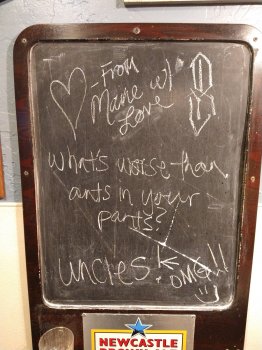 - From
Maine w/
Love
What's worse than
ants in your
pants?
uncles
OMG!!
NEWCASTLE